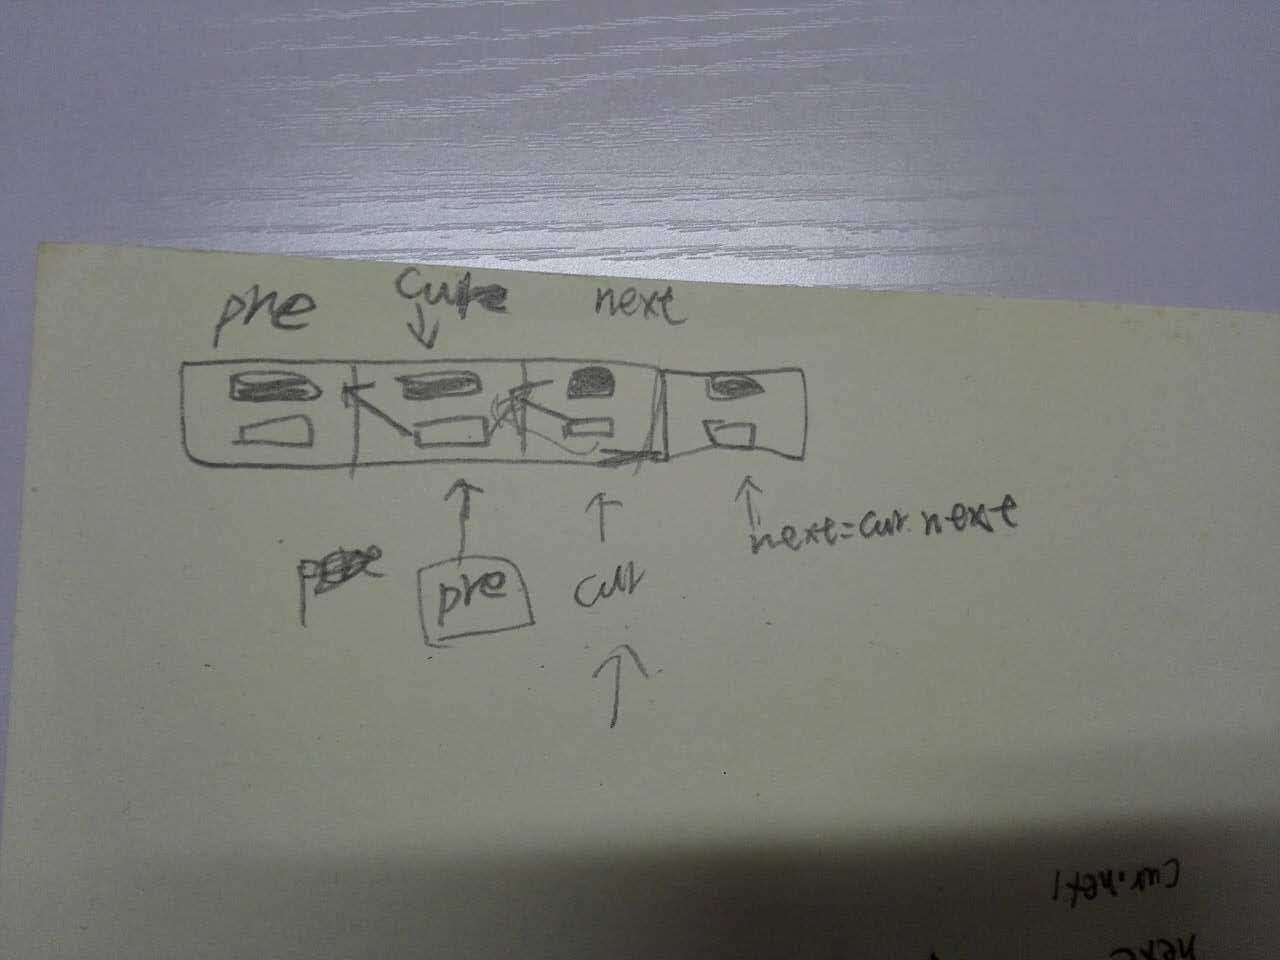 pre cur next
next=cur.next
pre cur
cur.next